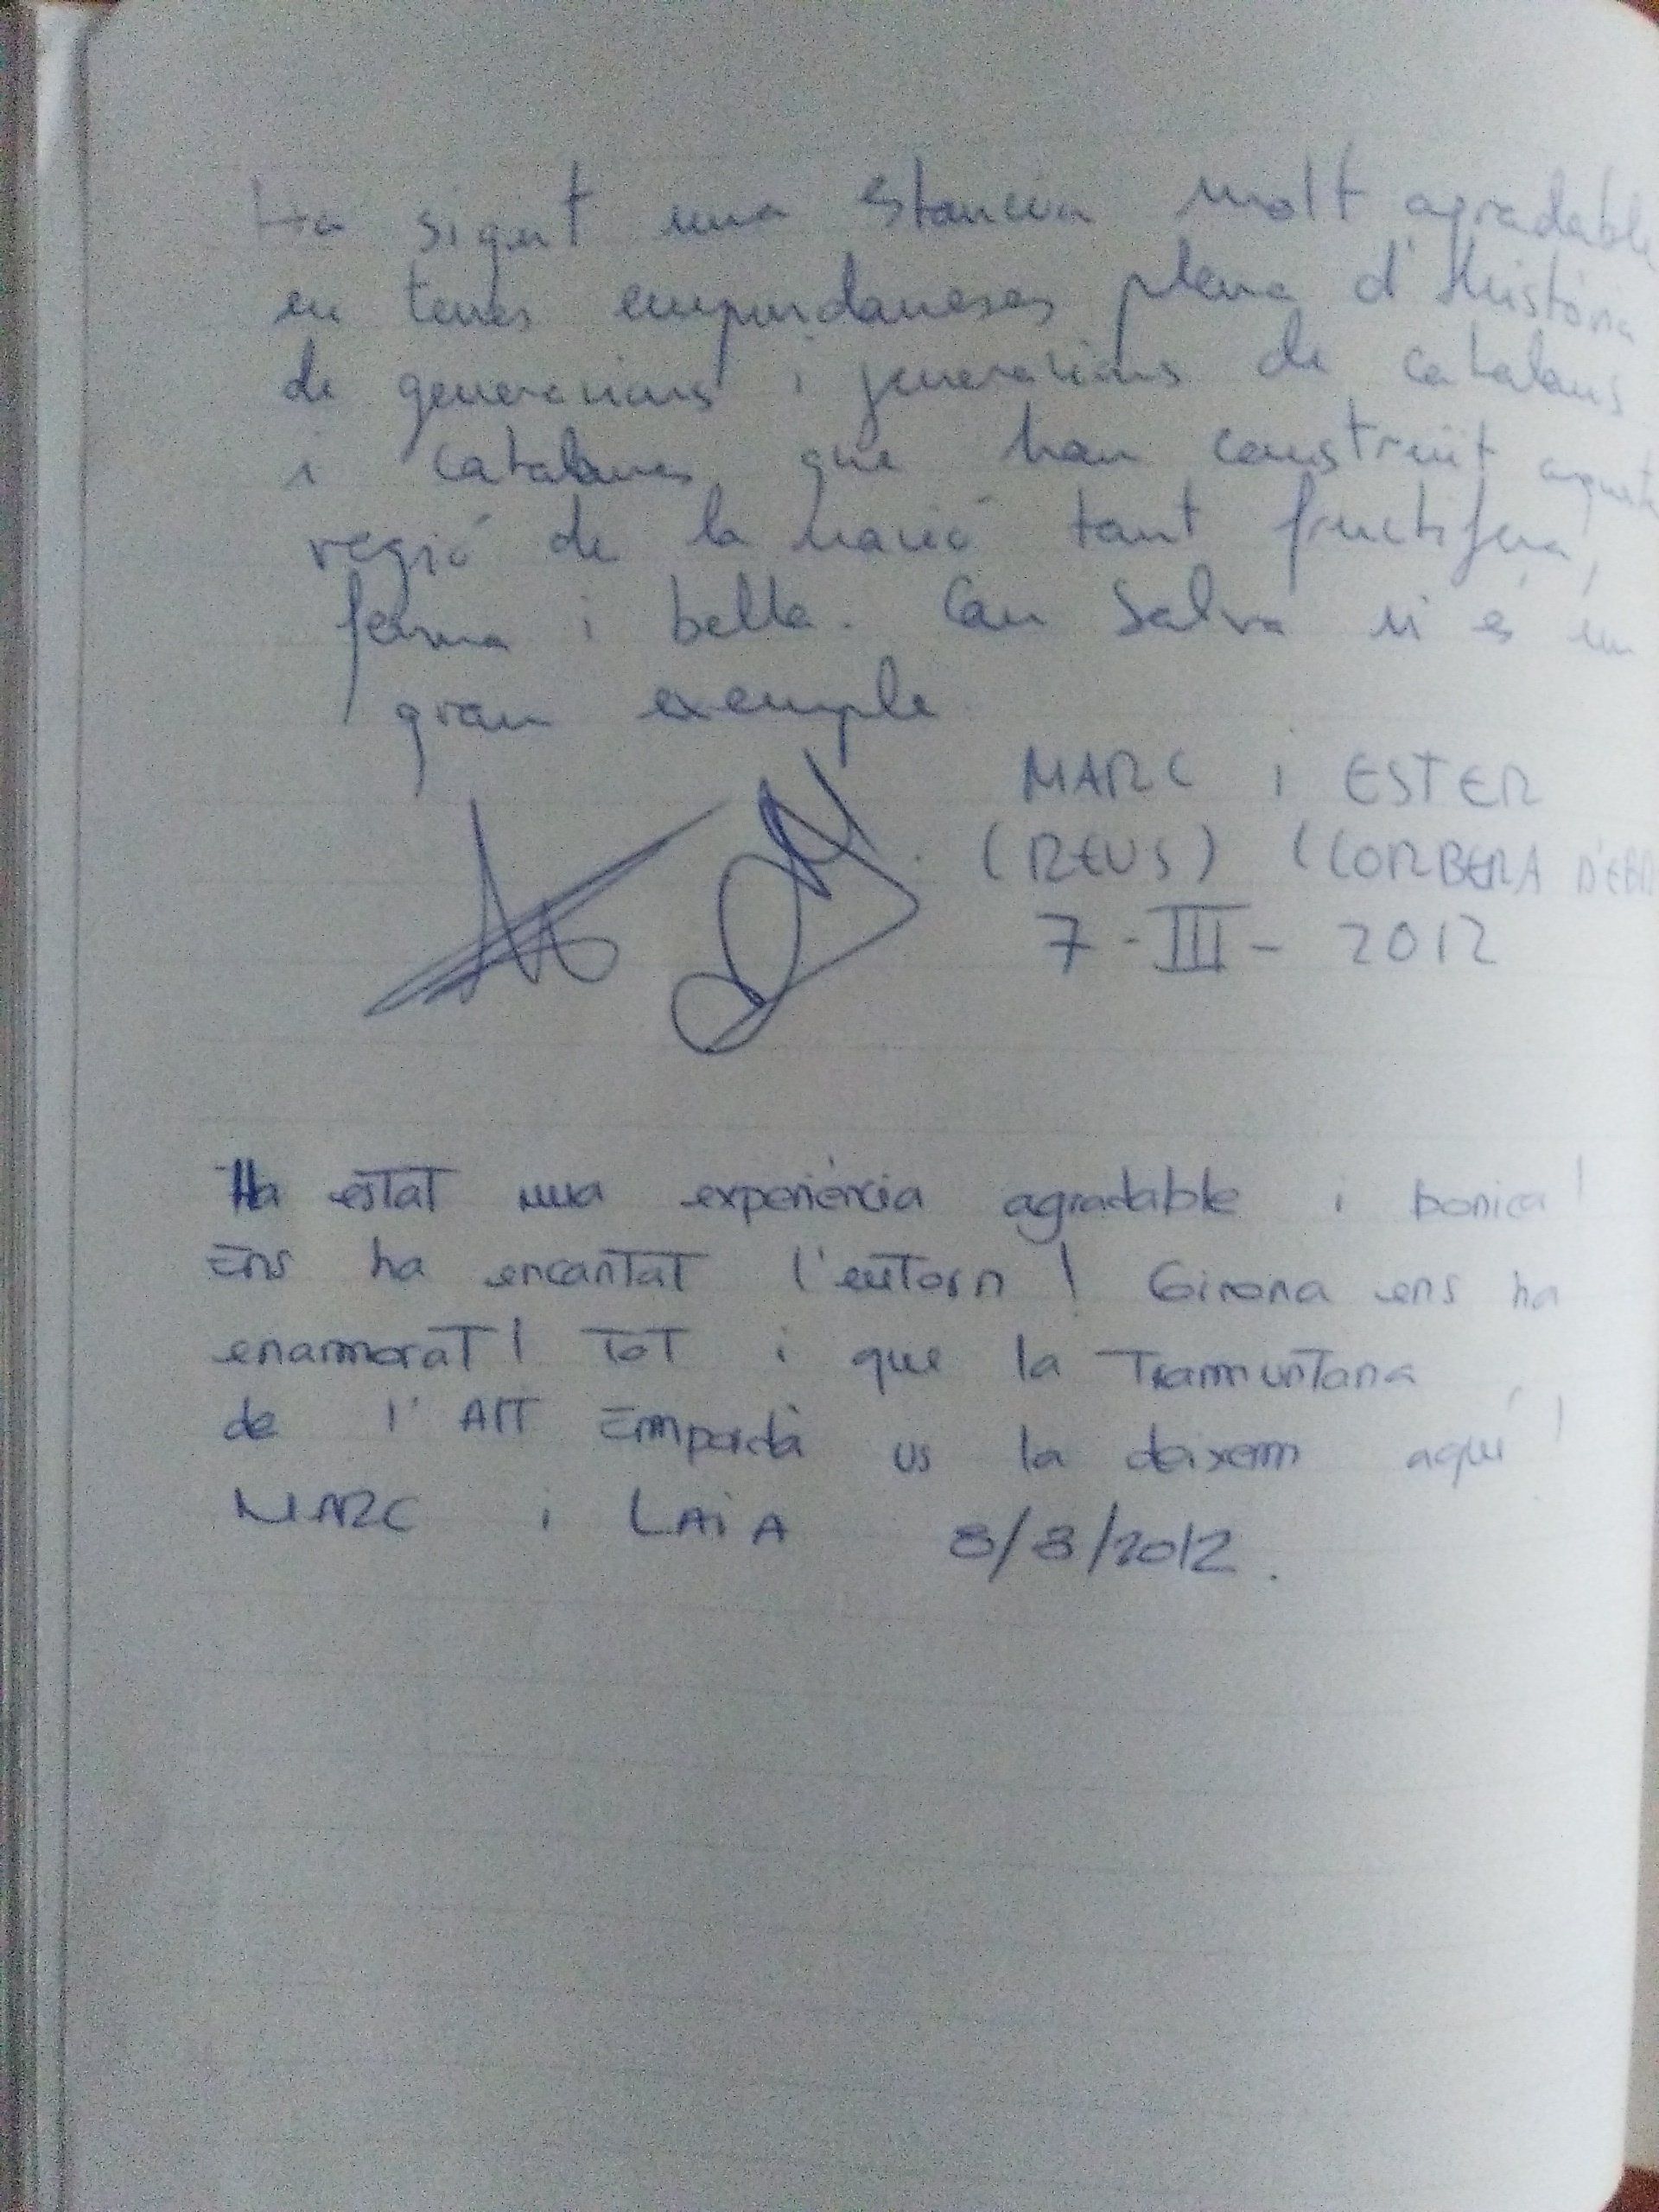 Ha sigut una estancia molt agradable
en terres empordaneses plena d'història
de generacions i generacions de catalans
i catalanes que han construït aquesta
regió de la nació tant fructífera,
ferma i bella. Can Salva n'és un
gran exemple
MARC i ESTER
(REUS) (CORBERA D'EBR
7-III-2012
Ha estat una experiència agradable i bonica!
Ens ha encantat l'entorn! Girona ens ha
enamorat! Tot i que la Tramuntana
de l'Alt Empordà us la deixem aquí!
MARC i LAIA 8/8/2012.